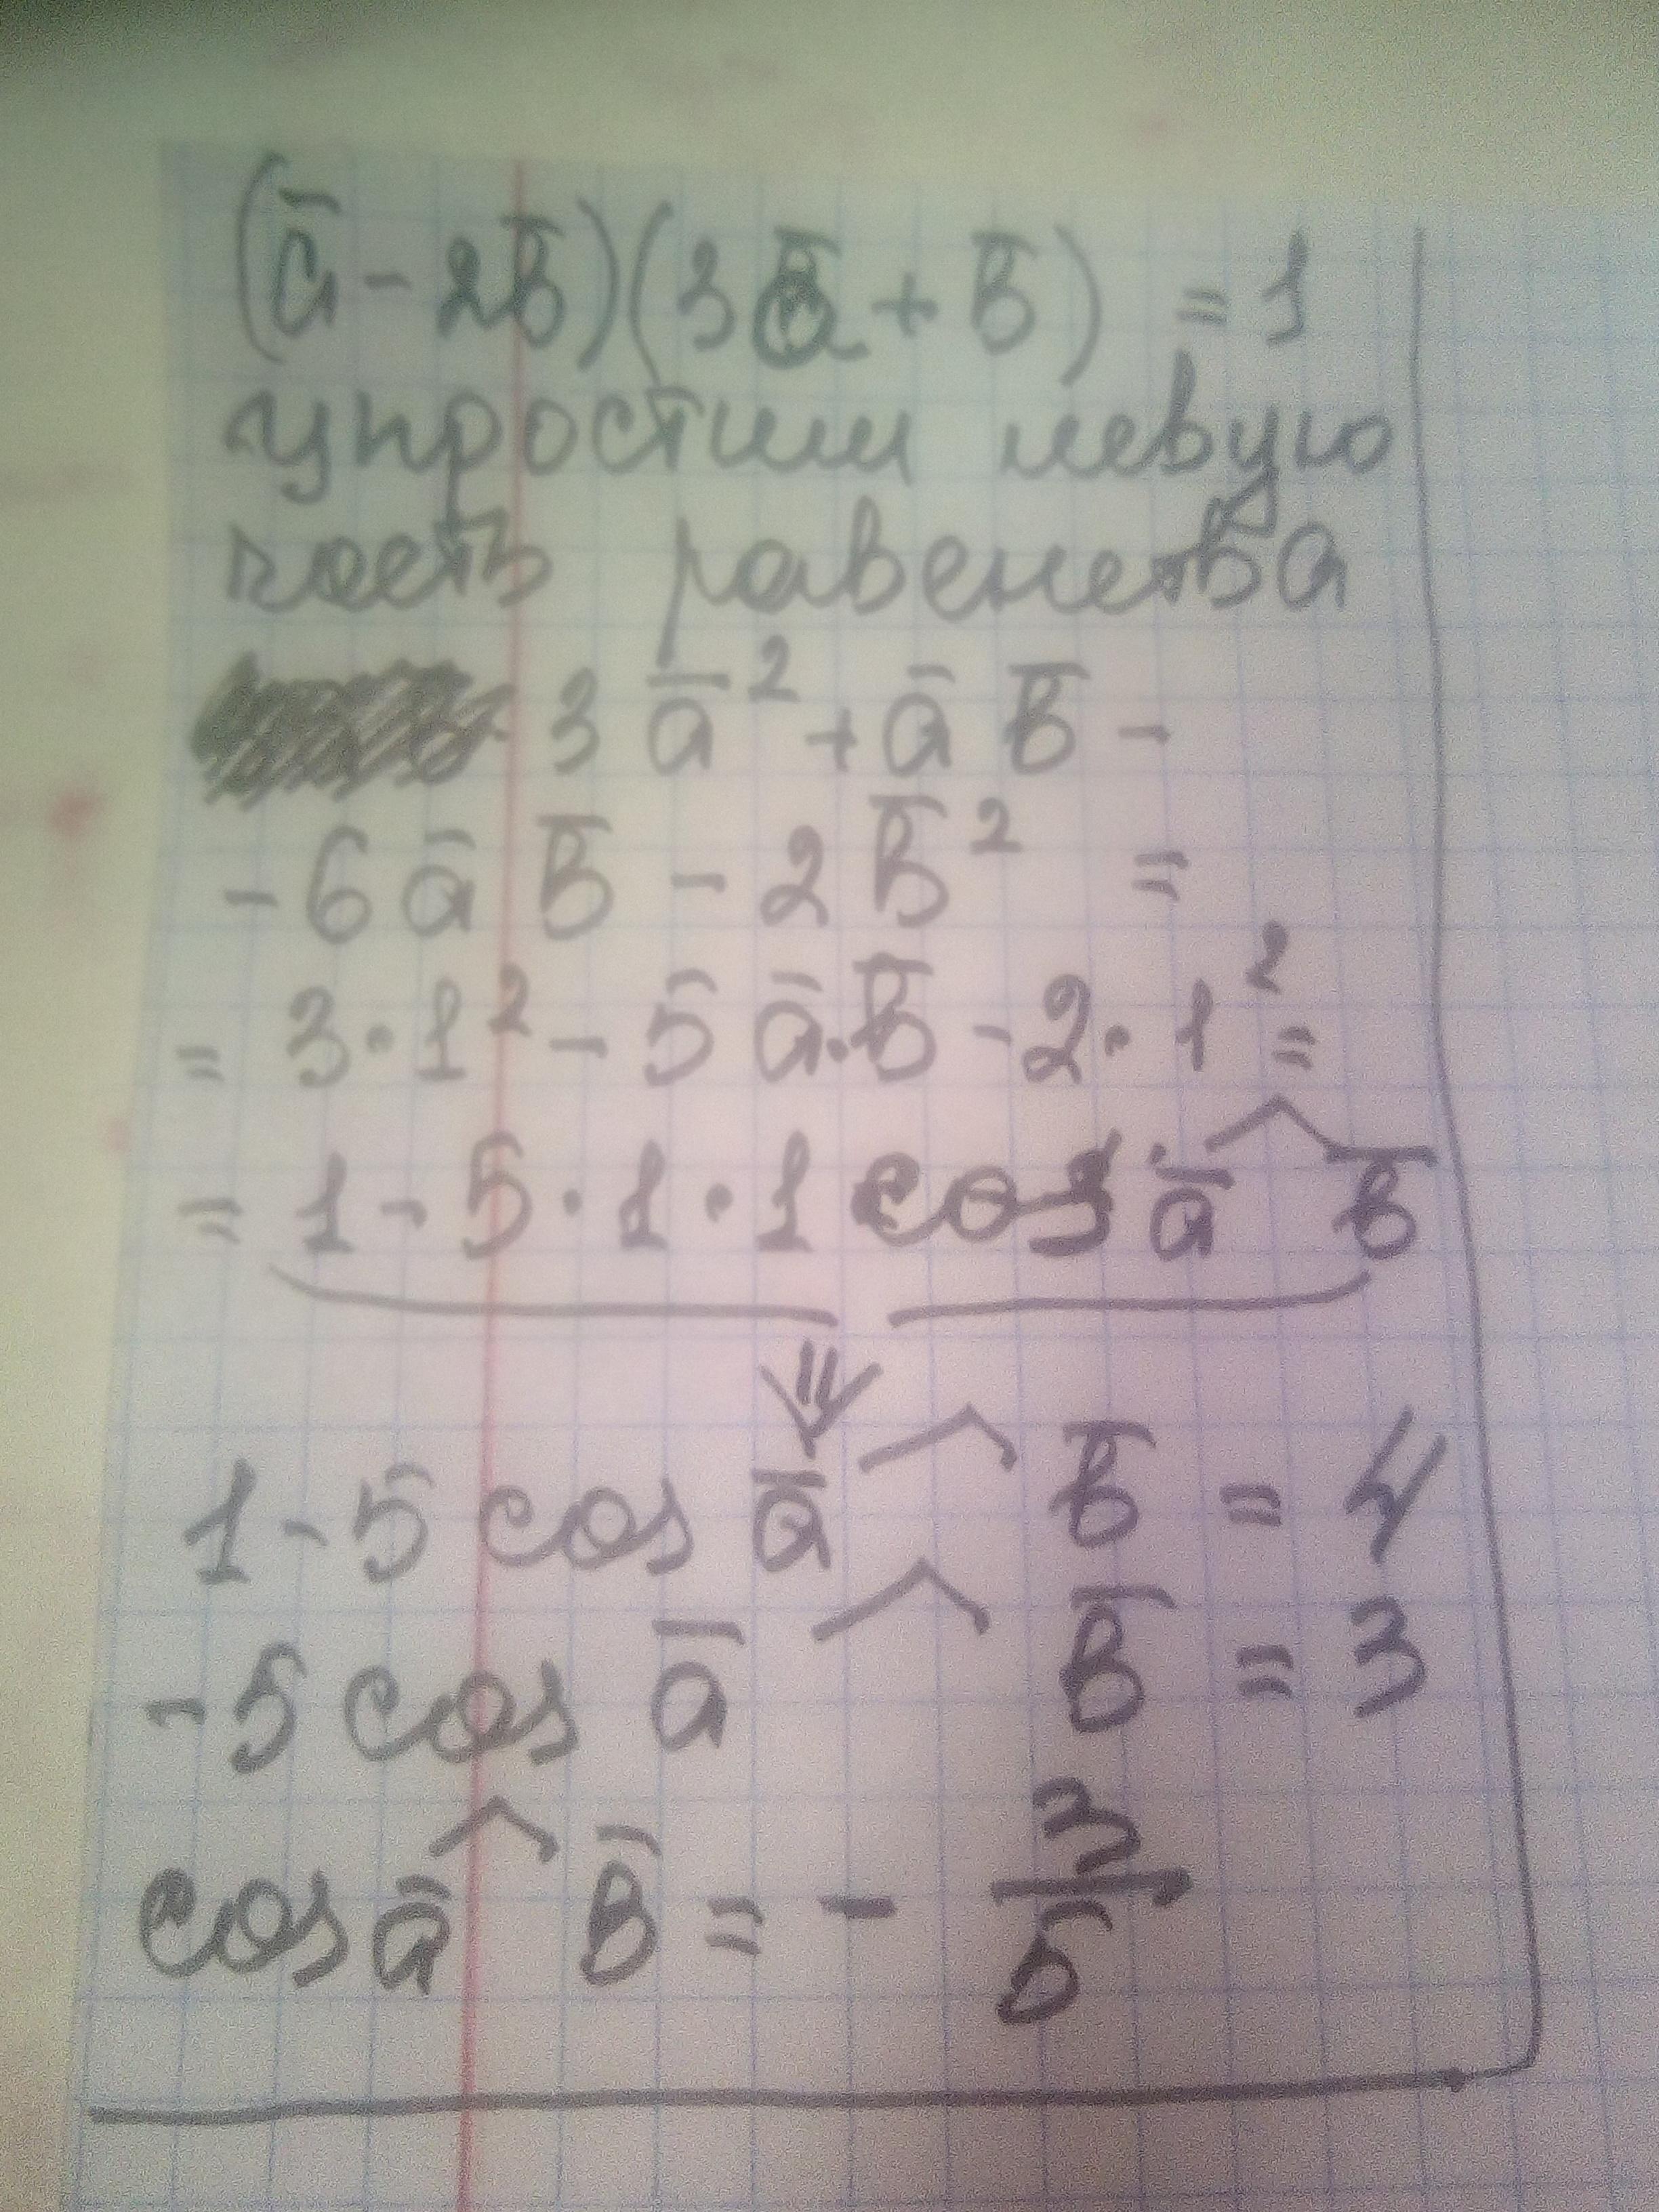 (a̅ - 2b̅)(3a̅ + b̅) = 1
упростим левую
часть равенства
3a̅² + a̅ b̅ -
- 6 a̅ b̅ - 2 b̅² =
= 3·1² - 5 a̅·b̅ - 2·1² =
= 1 - 5·1·1 cos a̅ ^ b̅
⇓
1 - 5 cos a̅ ^ b̅ = 4
- 5 cos a̅ ^ b̅ = 3
cos a̅ ^ b̅ = - 3/5